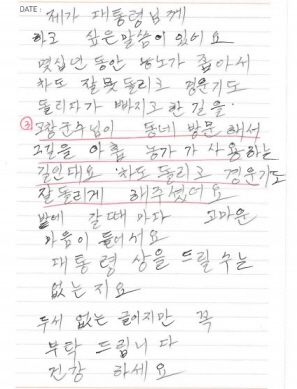 DATE:
제가 대통령님께
하고 싶은말씀이 있어요
몇십년 동안 농노가 좁아서
차도 잘못돌리고 경운기도
돌리다가 빠지고 한 길을
③ 고창군수님이 동네 방문 해서
그길을 아홉 농가가 사용하는
길인대요 차도 돌리고 경운기도
잘돌리게 해주셨어요
밭에 갈때마다 고마운
마음이 들어서요
대통령 상을 드릴수는
없는지요
두서 없는 글이지만 꼭
부탁 드립니다
건강 하세요